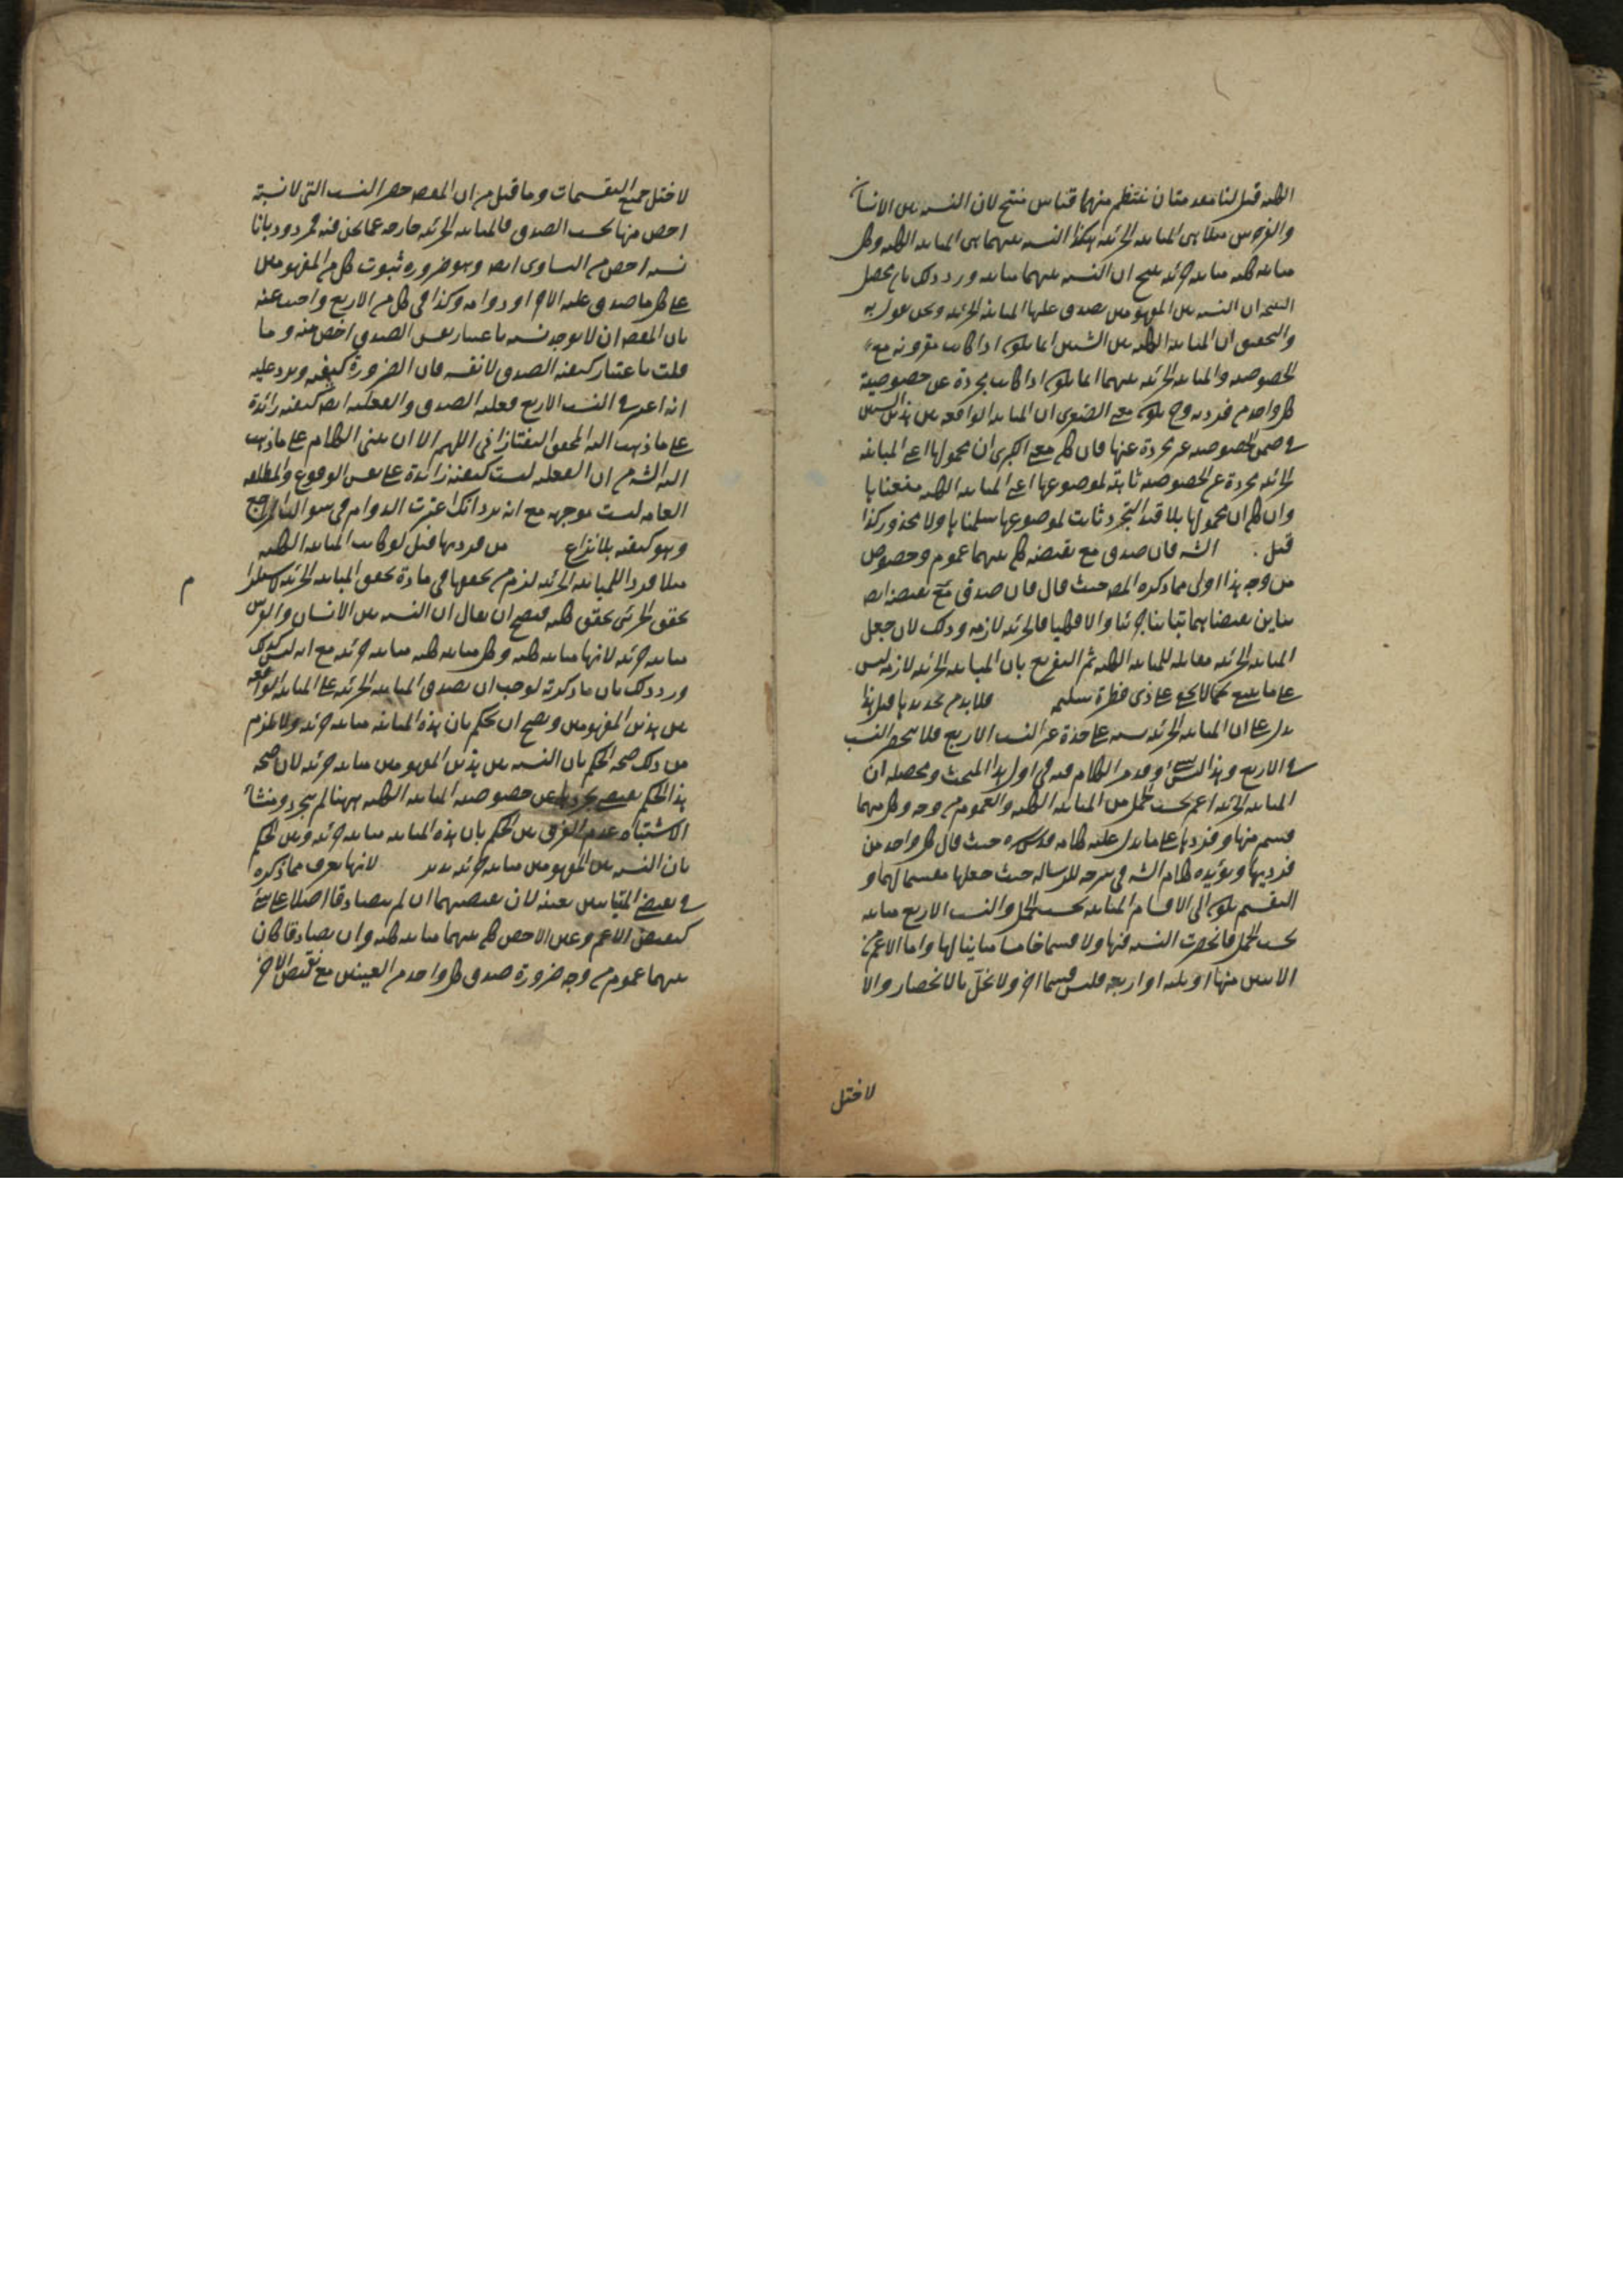 الكلية قيل لنا مقدمتان ينتظم منهما قياس منتج لان النسبة بين الانسان
والفرس مثلا هى المباينة الجزئية هكذا النسبة بينهما هى المباينة الكلية وكل
مباينة كلية مباينة جزئية ينتج ان النسبة بينهما مباينة ورد ذلك بان محصل
النتيجة ان النسبة بين المفهومين يصدق عليها المباينة الجزئية ونحن نقول به
والتحقيق ان المباينة الكلية بين الشيئين انما يكون اذا كانت مقرونة مع
الخصوصية والمباينة الجزئية بينهما انما يكون اذا كانت مجردة عن خصوصية
كل واحد من فرديه وح يكون معنى الصغرى ان المباينة الواقعة بين هذين الشيئين
فى ضمن الخصوصية غير مجردة عنها فان كان معنى الكبرى ان محمولها اعنى المباينة
الجزئية مجردة عن الخصوصية ثابتة لموضوعها اعنى المباينة الكلية منعناها
وان كان ان محمولها بلا قيد التجرد ثابت لموضوعها سلمناها ولا محذور كذا
قيل . الشه فان صدق مع نقيضه كان بينهما عموم وخصوص
من وجه هذا اولى مما ذكره المصـ حيث قال فان صدق مع نقيضه ايضـ
تباين نقيضاهما تباينا جزئيا والا فكليا فالجزئية لازمة وذلك لان جعل
المباينة الجزئية مقابلة للمباينة الكلية ثم التفريع بان المباينة الجزئية لازمة ليس
على ما ينبغى كما لا يخفى على ذى فطرة سليمة فلا بد من تحديدها قيل هذا
يدل على ان المباينة الجزئية نسبة على حدة غير النسب الاربع فلا ينحصر النسب
فى الاربع وهذا ليس اوقدم الكلام فيه فى اول هذا المبحث ومحصله ان
المباينة الجزئية اعم بحسب الحمل من المباينة الكلية والعموم من وجه وكل منهما
قسم منها وفرديها على ما يدل عليه كلامه قدس سره حيث قال كل واحد من
فرديها ويؤيده كلام الشه فى شرحه للرسالة حيث جعلها مقسما لهما و
التقسيم يكون الى الاقسام المباينة بحسب الحمل والنسب الاربع مباينة
بحسب الحمل فانحصرت النسبة فيها ولا قسما خامسا مباينا لها واما الاعم من
الاثنين منها او ثلثة او اربعة فليس قسما اخر ولا يخل بالانحصار والا
لاختل
لاختل جميع التقسيمات وما قيل من ان المقصـ حصر النسب التى لا نسبة
اخص منها بحسب الصدق فالمباينة الجزئية خارجة عما نحن فيه فمردود بانا
نسبة اخص من التساوى ايضـ وهو ضرورة ثبوت كل من المفهومين
على كل ما صدق عليه الاخر او دوامه وكذا فى كل من الاربع واجيب عنه
بان المقصـ ان لا يوجد نسبة باعتبار نفس الصدق اخص منه وما
قلت باعتبار كيفية الصدق لا نفسه فان الضرورة كيفية ويرد عليه
انه اعتبر فى النسب الاربع فعلية الصدق والفعلية ايضـ كيفية زائدة
على ما ذهب اليه المحقق التفتازانى اللهم الا ان يبنى الكلام على ما ذهب
اليه الشه من ان الفعلية ليست كيفية زائدة على نفس الوقوع والمطلقة
العامة ليست موجهة مع انه يرد انك اعتبرت الدوام فى سوالب المراجع
وهو كيفية بلا نزاع من فرديها قيل لو كانت المباينة الكلية
مثلا فردا للمباينة الجزئية لزم من تحققها فى مادة تحقق المباينة الجزئية لاستلزام
تحقق الجزئى تحقق كليه فيصح ان يقال ان النسبة بين الانسان والفرس
مباينة جزئية لانها مباينة كلية وكل مباينة كلية مباينة جزئية مع انه ليس كذلك
ورد ذلك بان ما ذكرته لوجب ان يصدق المباينة الجزئية على المباينة الواقعة
بين هذين المفهومين ويصح ان يحكم بان هذه المباينة مباينة جزئية ولا يلزم
من ذلك صحة الحكم بان النسبة بين هذين المفهومين مباينة جزئية لان صحة
هذا الحكم يقتضى تجردها عن خصوصية المباينة الكلية وههنا لم يتجرد ومنشأ
الاشتباه عدم الفرق بين الحكم بان هذه المباينة مباينة جزئية وبين الحكم
بان النسبة بين المفهومين مباينة جزئية تدبر لانها يعرف مما ذكره
فى نقيضى المتباينين بعينه لان نقيضيهما ان لم يتصادقا اصلا على شئ
كنقيض الاعم وعين الاخص كان بينهما مباينة كلية وان تصادقا كان
بينهما عموم من وجه ضرورة صدق كل واحد من العينين مع نقيض الاخر
م